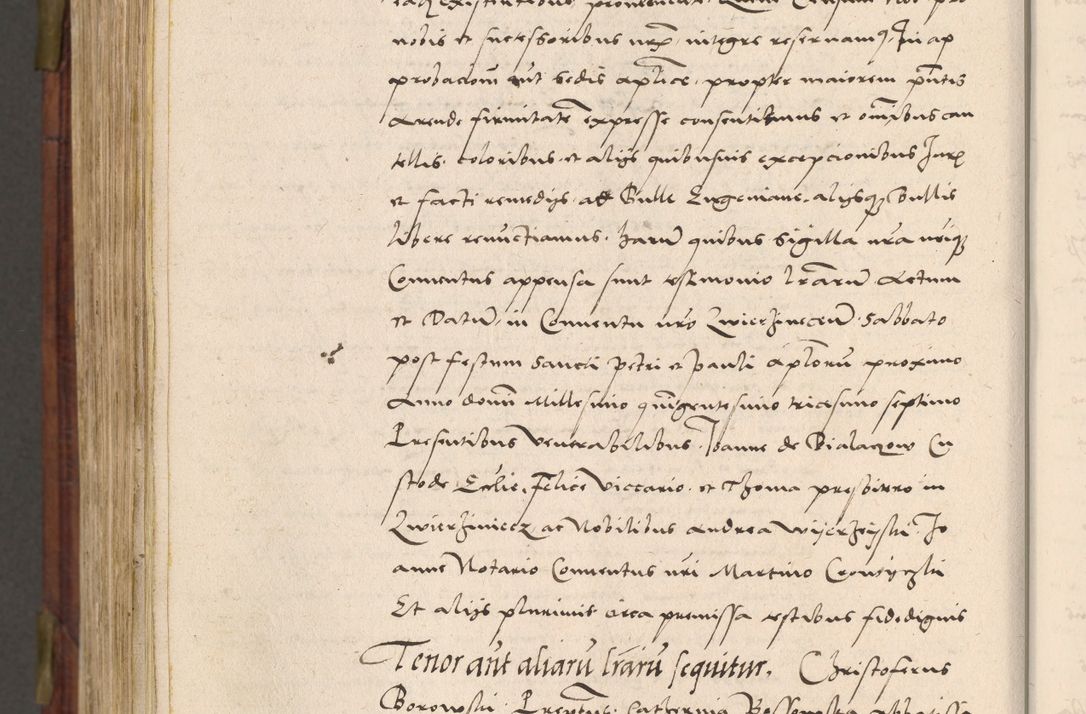 nobis et successoribus nrx integre reservamus. In ap
probaciom aut sedis aplice, propter maiorem pntis
Arende firmitate expresse consentibimus et omibus cau
tellis coloribus et alijs quibusuis excepcionibus Juris
et facti remedijs ac Bulle Eugeniane, alijsqz bullis
libere renunctiamus. harum quibus sigilla nra nriqz
Conuentus appensa sunt testimonio lrarum Actum
et Datum in Conuentu nro Zwierzinecensi Sabbato
post festum Sancti Petri et Pauli Aplorum proximo
Anno domini Millesimo quingentesimo tricesimo septimo
Presentibus Venerabilibus. Joanne de Bialaczow Cu
stode Ecclie, Felice Viccario et Thoma presbitero in
Zwierziniecz, ac Nobilibus Andrea Wijerzijski Jo
anne Notario Conuentus nri Martino Crowiczki
Et alijs plurimis circa premissa testibus fidedignis
Tenor aut aliaru lraru sequitur. Christoferus
Borowski